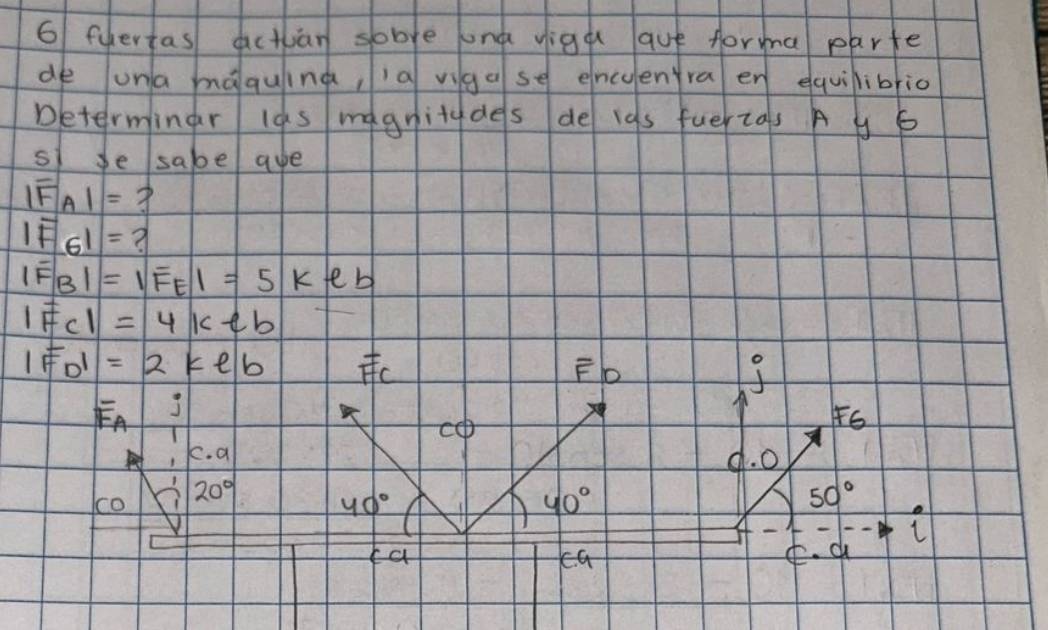 6 fuerzas actúan sobre una viga que forma parte
de una máquina, la viga se encuentra en equilibrio
Determinar las magnitudes de las fuerzas A y 6
si se sabe que
|F̄A| = ?
|F̄6| = ?
|F̄B| = |F̄E| = 5 K lb
|F̄C| = 4 K lb
|F̄D| = 2 K lb
F̄C F̄D j
F̄A j F6
CO c.a 20° CO C.O
40° 40° 50°
ca ca c.a i